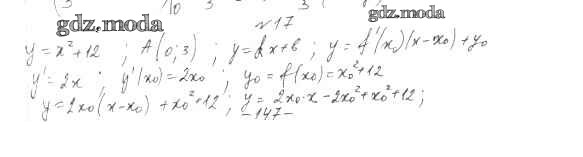 gdz.moda gdz.moda
№17
y = x² + 12 ; A(0; 3) ; y = kx + b ; y = f'(x₀)(x - x₀) + y₀
y' = 2x ; y'(x₀) = 2x₀ ; y₀ = f(x₀) = x₀² + 12
y = 2x₀(x - x₀) + x₀² + 12 ; y = 2x₀·x - 2x₀² + x₀² + 12 ;
- 147 -